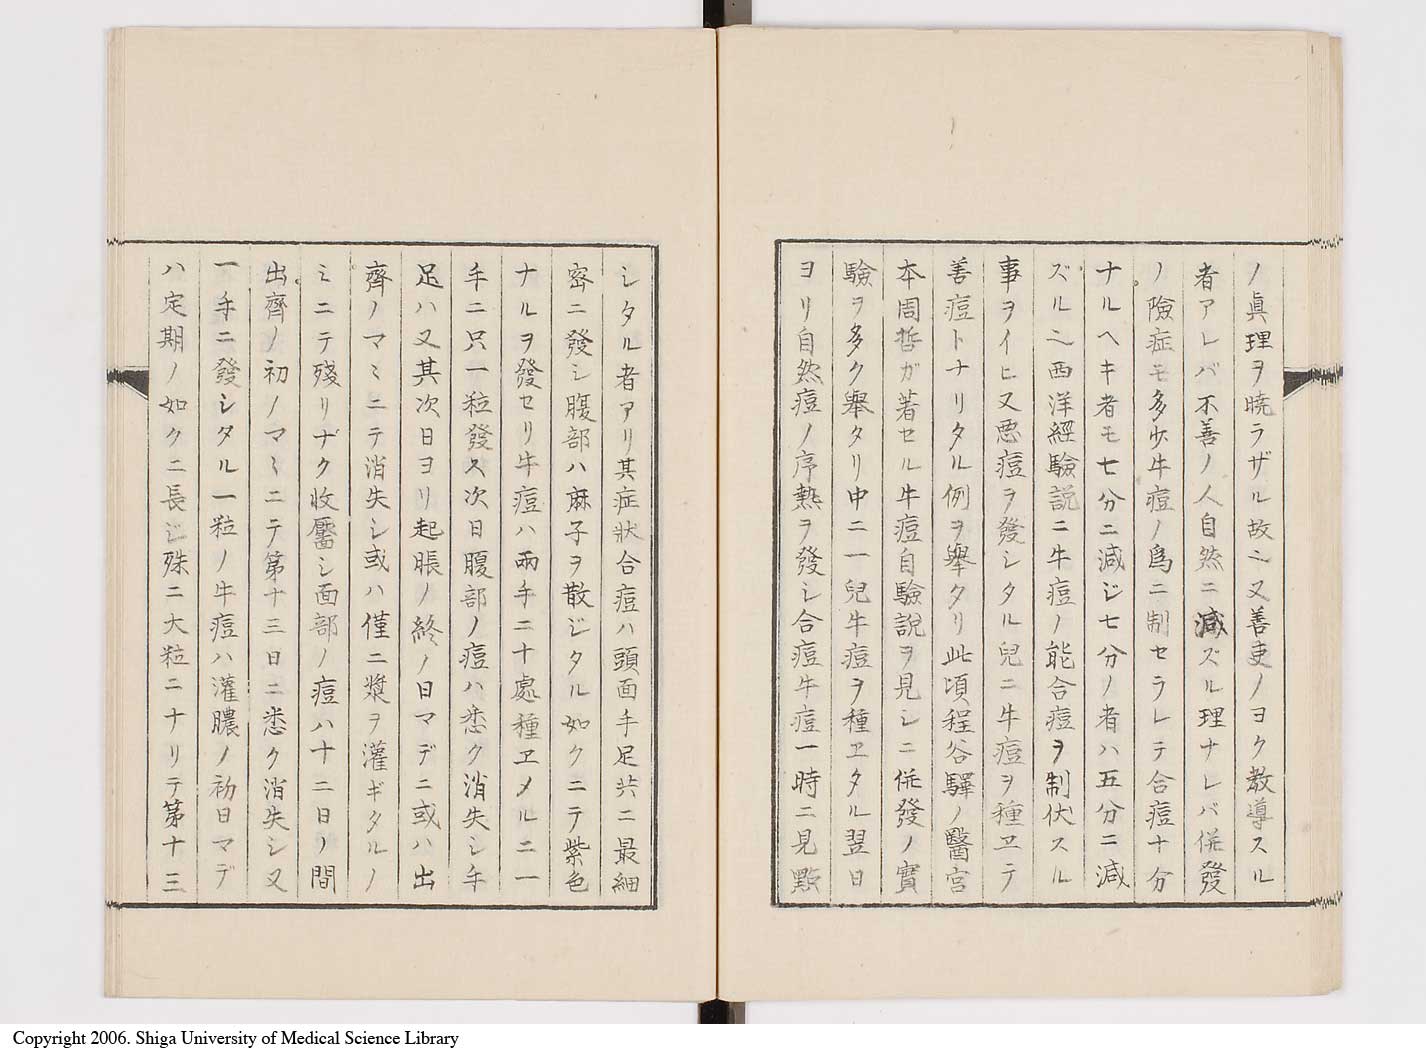 ノ眞理ヲ曉ラザル故ニ又善吏ノヨク教導スル
者アレバ不善ノ人自然ニ減ズル理ナレバ併發
ノ險症モ多少牛痘ノ爲ニ制セラレテ合痘十分
ナルヘキ者モ七分ニ減ジ七分ノ者ハ五分ニ減
ズル也西洋經驗説ニ牛痘ノ能合痘ヲ制伏スル
事ヲイヒ又悪痘ヲ發シタル兒ニ牛痘ヲ種ヱテ
善痘トナリタル例ヲ舉タリ此頃程谷驛ノ醫宮
本周哲ガ著セル牛痘自驗説ヲ見シニ併發ノ實
驗ヲ多ク舉タリ中ニ一兒牛痘ヲ種ヱタル翌日
ヨリ自然痘ノ序熱ヲ發シ合痘牛痘一時ニ見點
シタル者アリ其症狀合痘ハ頭面手足共ニ最細
密ニ發シ腹部ハ麻子ヲ散ジタル如クニテ紫色
ナルヲ發セリ牛痘ハ兩手ニ十處種ヱメルニ一
手ニ只一粒發ス次日腹部ノ痘ハ悉ク消失シ手
足ハ又其次日ヨリ起脹ノ終ノ日マデニ或ハ出
齊ノマミニテ消失シ或ハ僅ニ漿ヲ灌ギタルノ
ミニテ殘リナク收靨シ面部ノ痘ハ十二日ノ間
出齊ノ初ノマミニテ第十三日ニ悉ク消失シ又
一手ニ發シタル一粒ノ牛痘ハ灌膿ノ初日マデ
ハ定期ノ如クニ長ジ殊ニ大粒ニナリテ第十三
Copyright 2006. Shiga University of Medical Science Library